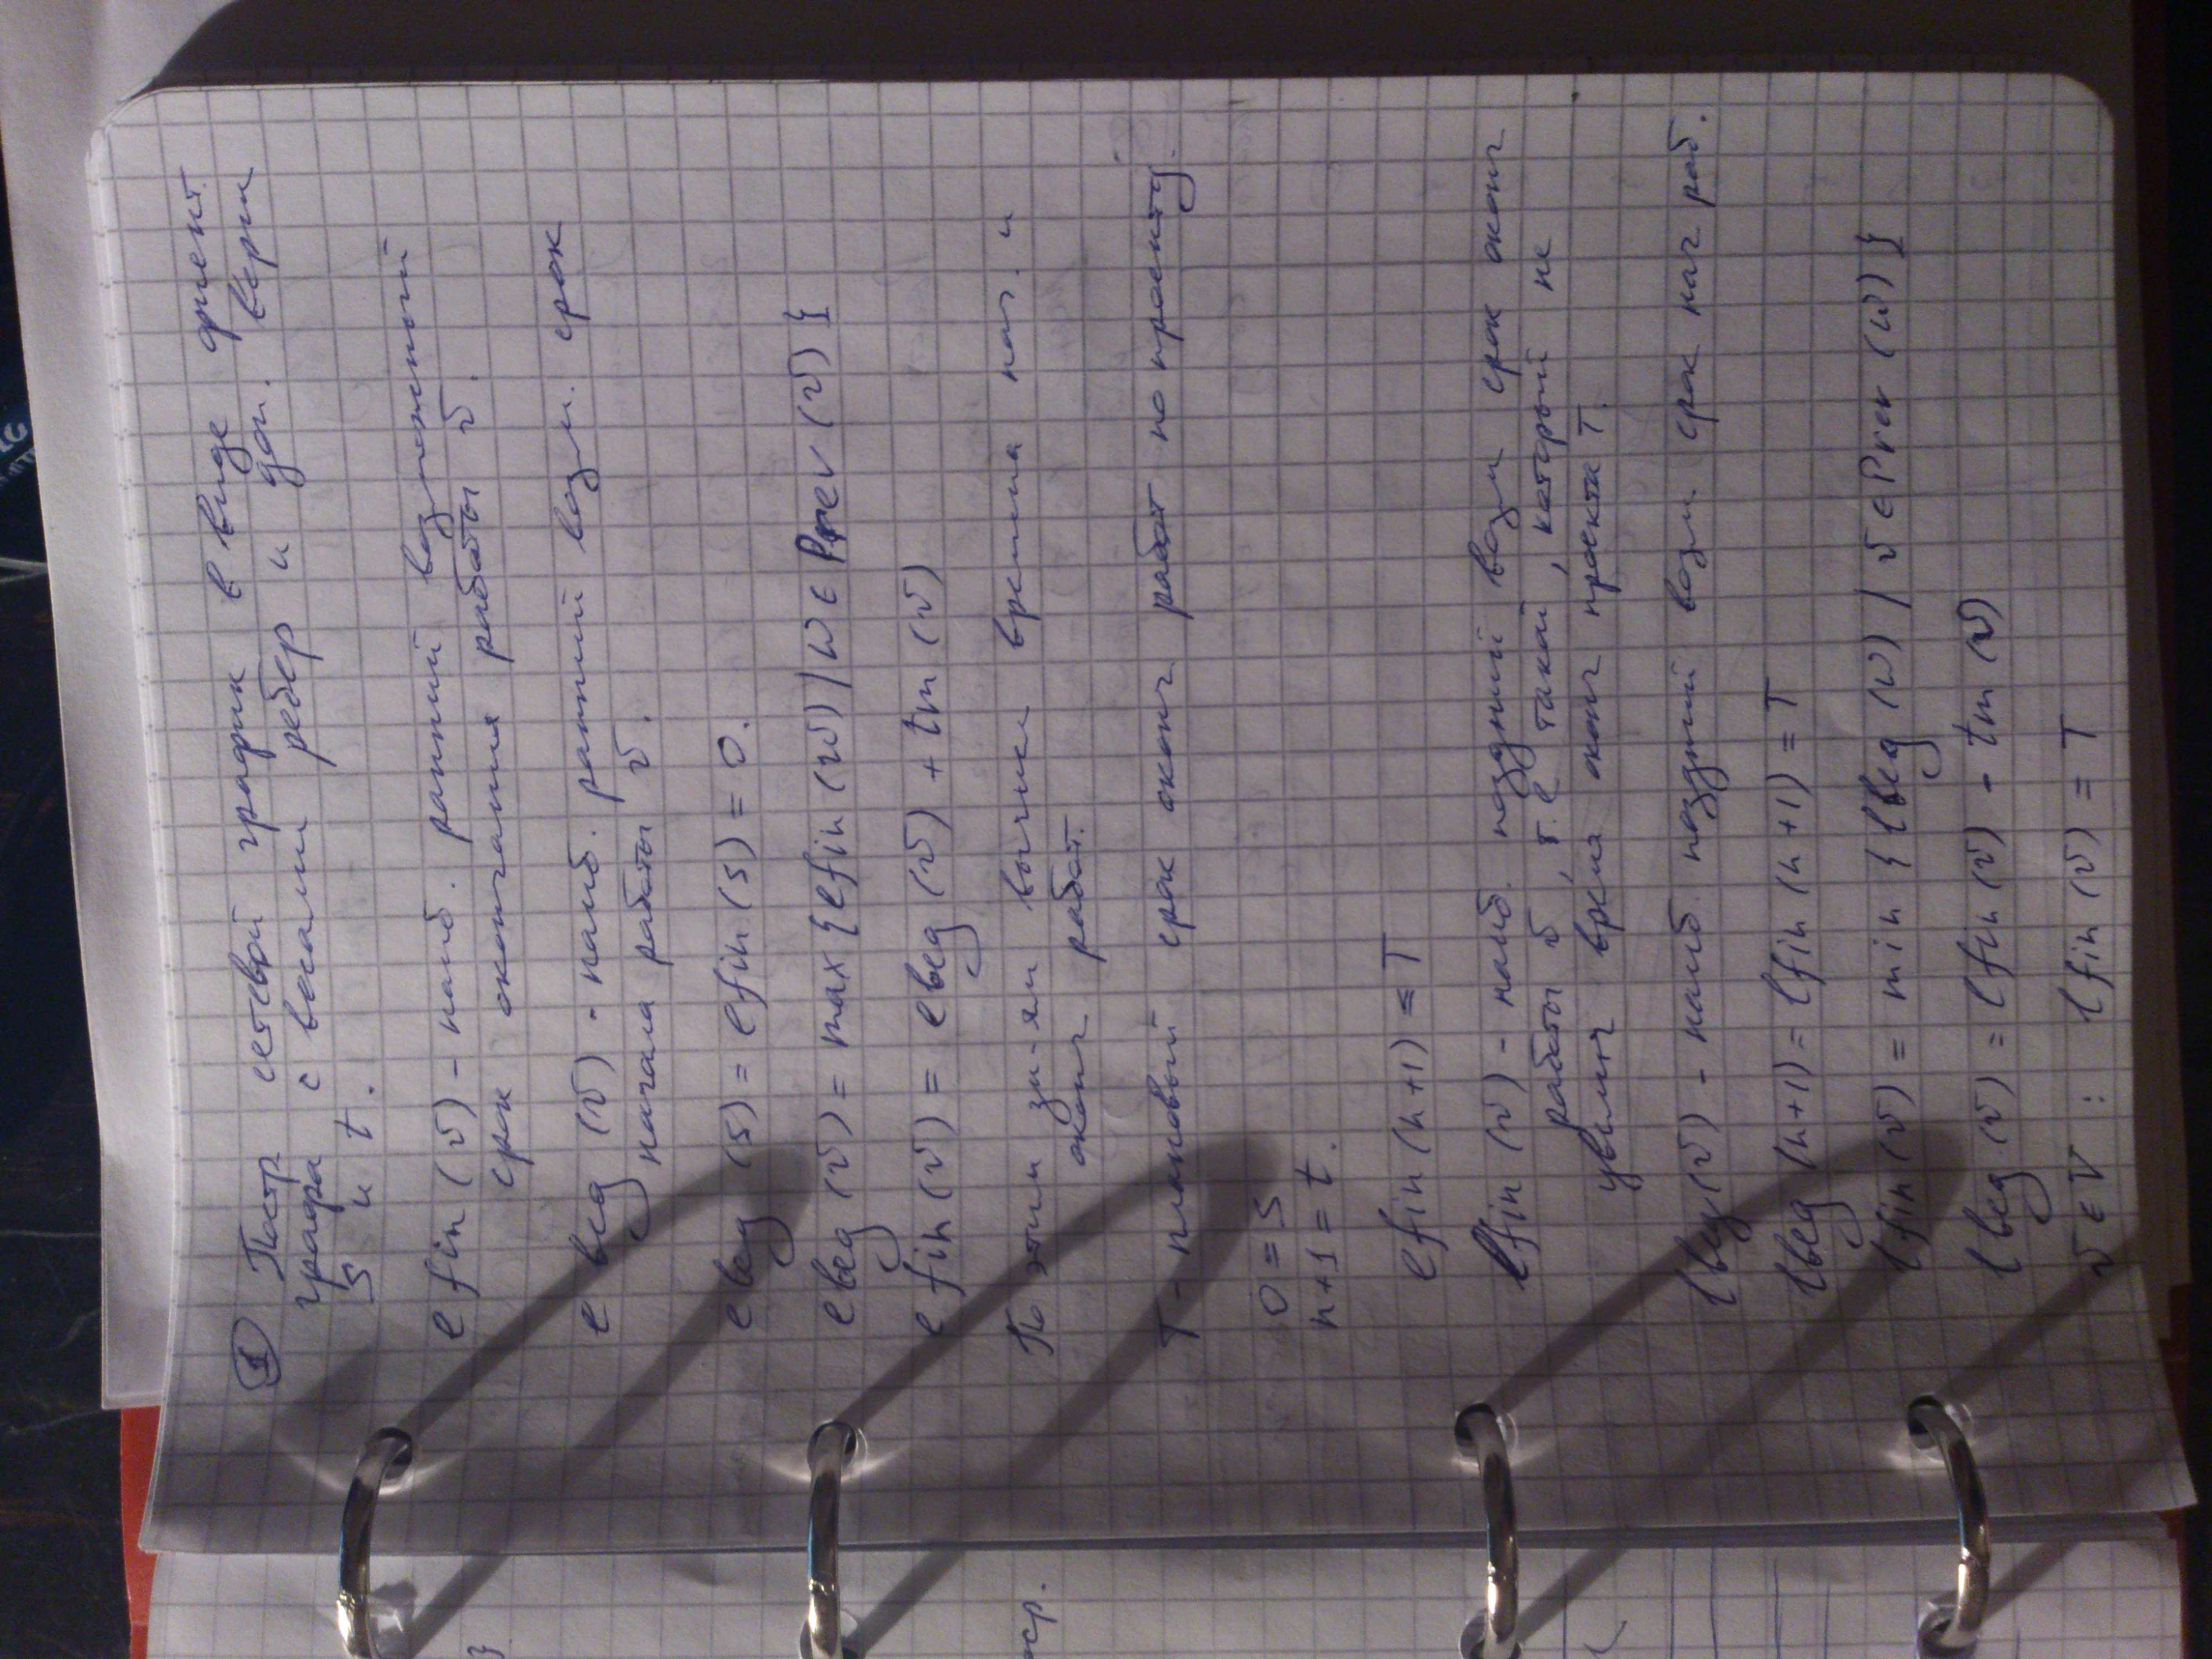 ① Постр сетевой график в виде ориент.
графа с весами ребер и доп. верш
s и t.
efin (v) - наиб. ранний возможный
срок окончания работы v.
ebeg (v) - наиб. ранний возм. срок
начала работы v.
ebeg (s) = efin (s) = 0.
ebeg (v) = max {efin (w) | w ∈ Prev (v)}
efin (v) = ebeg (v) + tm (v)
По этим зн-ям вычисл времена нач. и
оконч работ.
T - плановый срок оконч работ по проекту.
0 = s
n+1 = t.
efin (n+1) = T
lfin (v) - наиб. поздний возм срок оконч
работы v, т.е такой, который не
увелич время оконч проекта T.
lbeg (v) - наиб поздний возм срок нач раб.
lbeg (n+1) = lfin (n+1) = T
lfin (v) = min {lbeg (w) | v ∈ Prev (w)}
lbeg (v) = lfin (v) - tm (v)
v ∈ V : lfin (v) = T
}
оср.